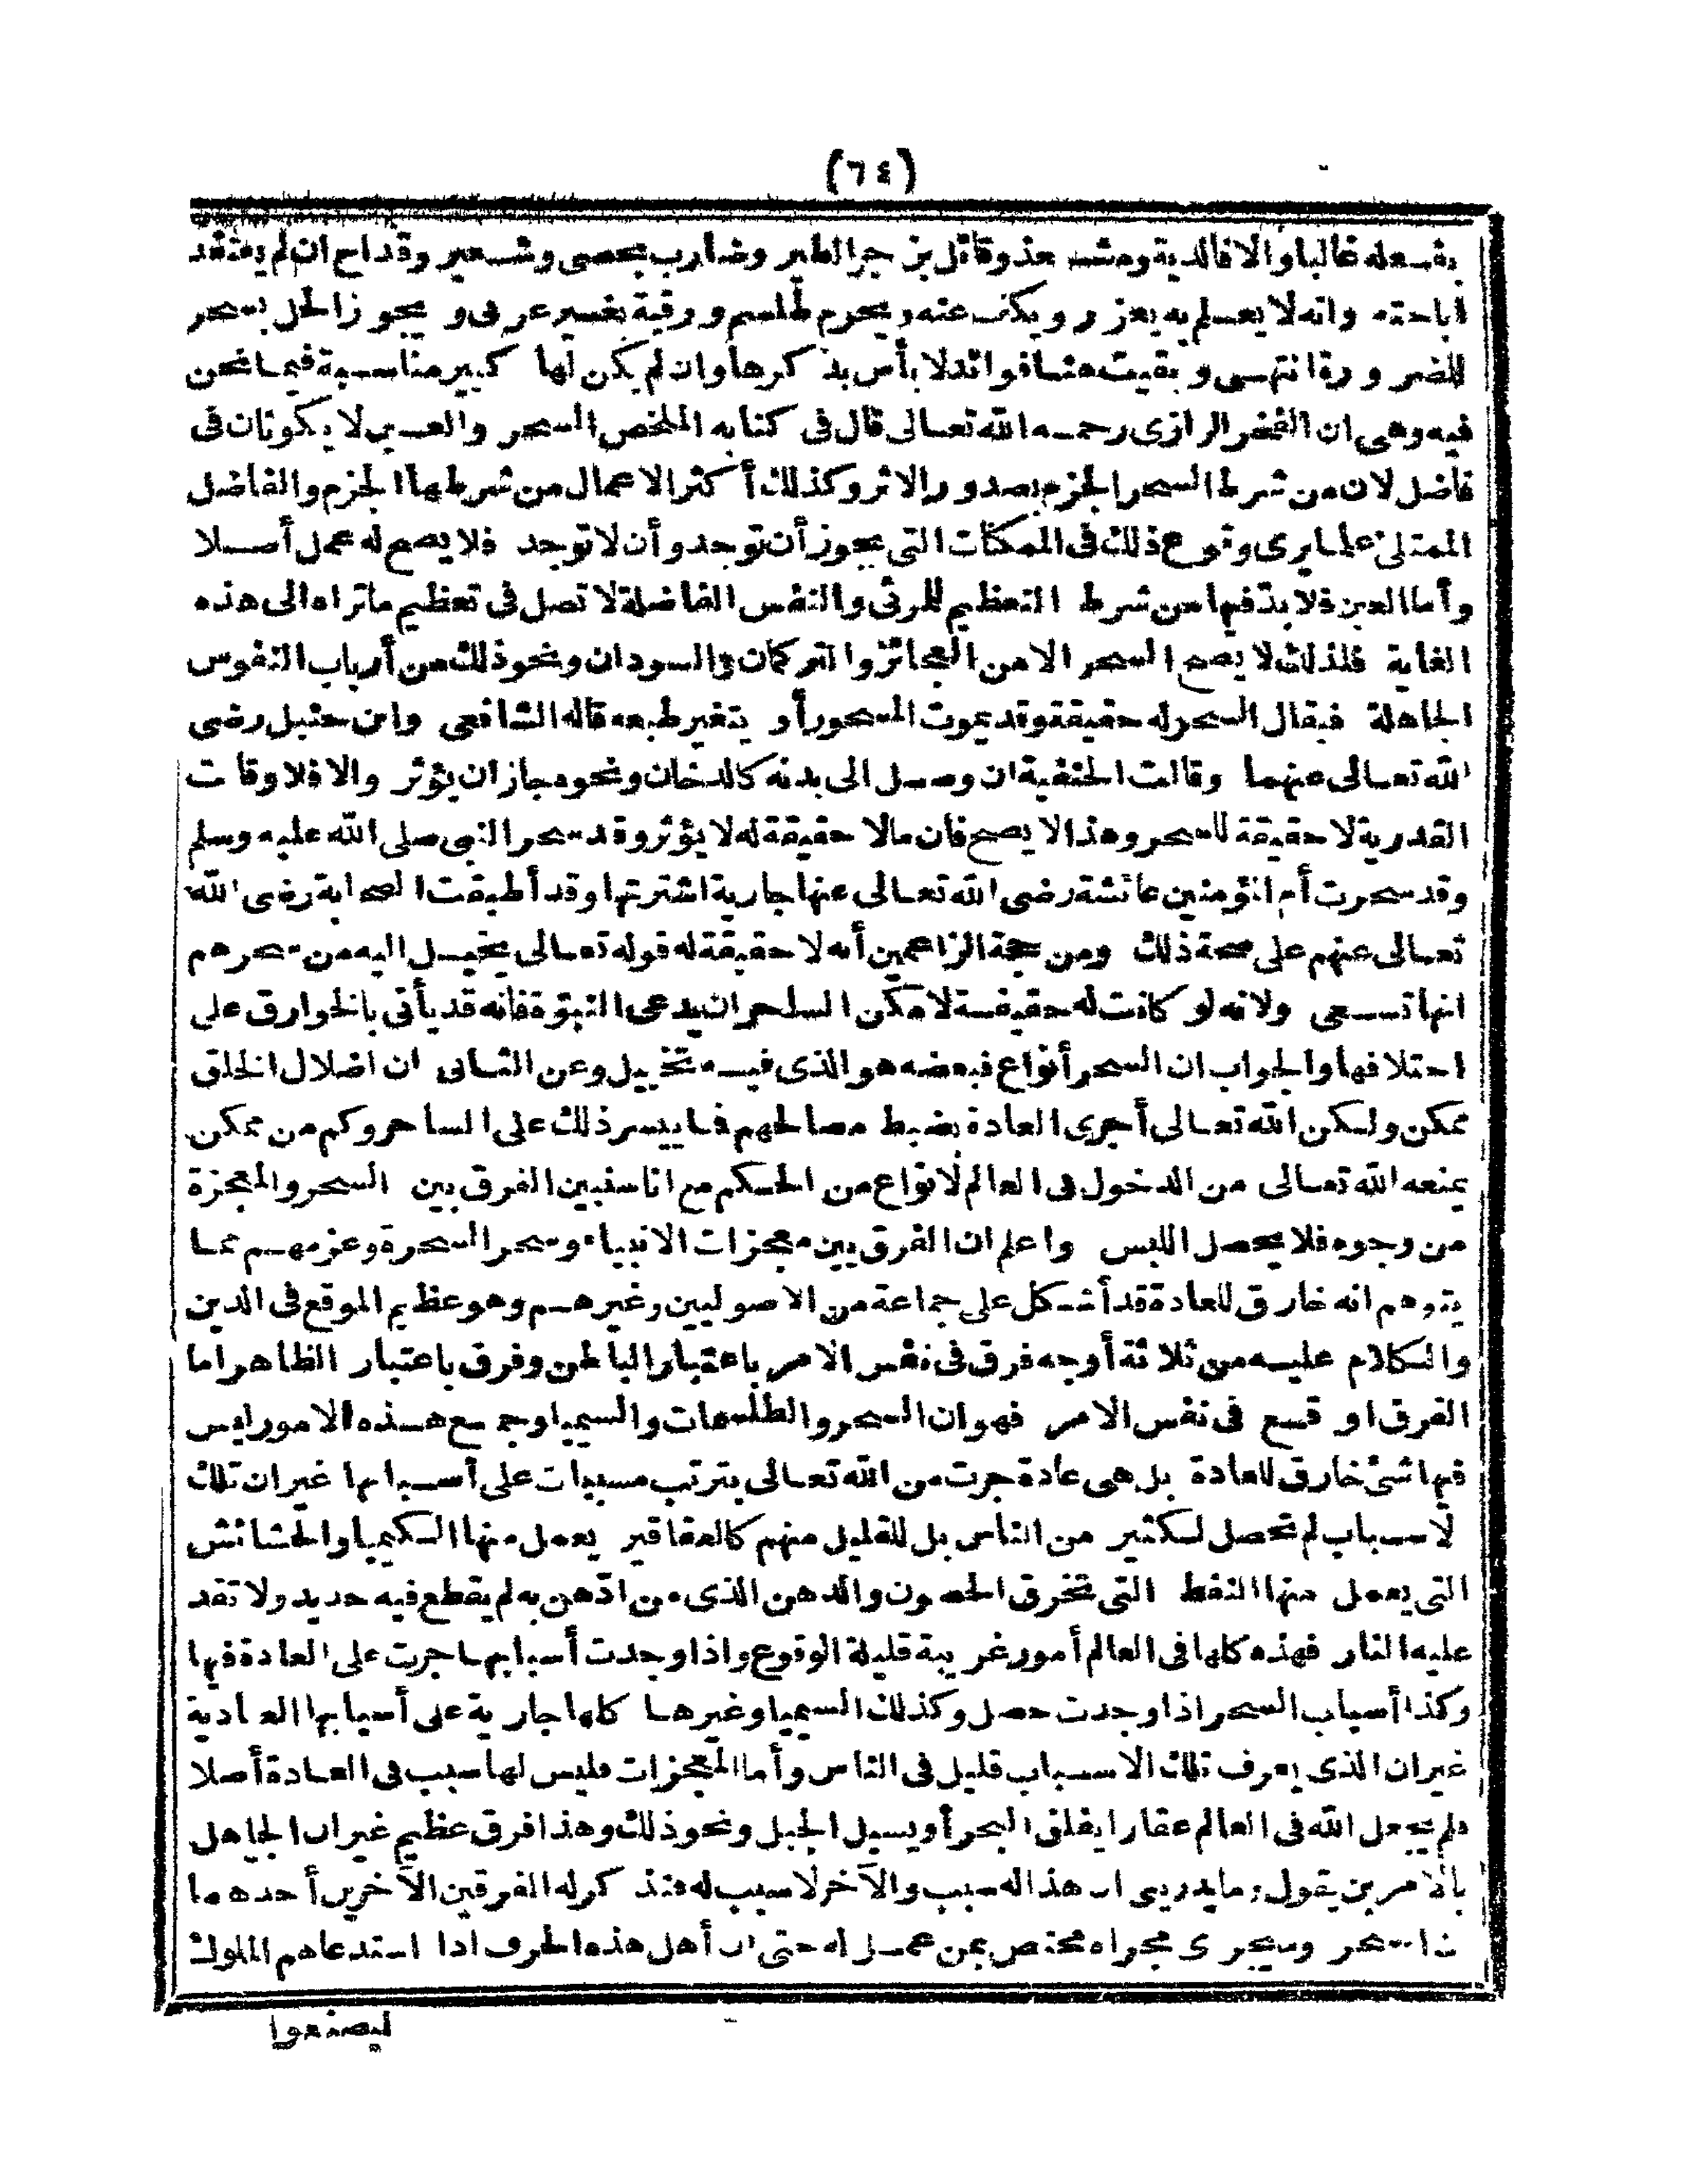 (٦٤)
بفعله غالبا والا فالدية ومشعبذ وقائل بزجر الطير وضارب بحصى وشعير وقداح ان لم يعتقد
اباحته وانه لا يعلم به يعزر ويكف عنه ويحرم طلسم ورقية بغير عربى ويجوز الحل بسحر
للضرورة انتهى وبقيت هنا فوائد لا بأس بذكرها وان لم يكن لها كبير مناسبة فيما نحن
فيه وهى ان الفخر الرازى رحمه الله تعالى قال فى كتابه الملخص السحر والعين لا يكونان فى
فاضل لان من شرط السحر الجزم بصدور الاثر وكذلك أكثر الاعمال من شرطها الجزم والفاضل
الممتلئ علما يرى وقوع ذلك فى الممكنات التى يجوز أن توجد وأن لا توجد فلا يصح له عمل أصلا
وأما العين فلا بد فيها من شرط التعظيم للمرئى والنفس الفاضلة لا تصل فى تعظيم ما تراه الى هذه
الغاية فلذلك لا يصح السحر الا من العجائز والتركمان والسودان ونحو ذلك من أرباب النفوس
الجاهلة فيقال السحر له حقيقة وقد يموت المسحور أو يتغير طبعه قاله الشافعى وابن حنبل رضى
الله تعالى عنهما وقالت الحنفية ان وصل الى بدنه كالدخان ونحوه جاز ان يؤثر والا فلا وقالت
القدرية لا حقيقة للسحر وهذا لا يصح فان ما لا حقيقة له لا يؤثر وقد سحر النبى صلى الله عليه وسلم
وقد سحرت أم المؤمنين عائشة رضى الله تعالى عنها جارية اشترتها وقد أطبقت الصحابة رضى الله
تعالى عنهم على صحة ذلك ومن حجة الزاعمين أنه لا حقيقة له قوله تعالى يخيل اليه من سحرهم
انها تسعى ولانه لو كانت له حقيقة لامكن الساحر ان يدعى النبوة فانه قد يأتى بالخوارق على
اختلافها والجواب ان السحر أنواع فبعضه هو الذى فيه تخييل وعن الثانى ان اضلال الخلق
ممكن ولكن الله تعالى أجرى العادة بضبط مصالحهم فما ييسر ذلك على الساحر وكم من ممكن
يمنعه الله تعالى من الدخول فى العالم لانواع من الحكم مع انا سنبين الفرق بين السحر والمعجزة
من وجوه فلا يحصل اللبس واعلم ان الفرق بين معجزات الانبياء وسحر السحرة وغيرهم مما
يتوهم انه خارق للعادة قد أشكل على جماعة من الاصوليين وغيرهم وهو عظيم الموقع فى الدين
والكلام عليه من ثلاثة أوجه فرق فى نفس الامر باعتبار الباطن وفرق باعتبار الظاهر اما
الفرق الواقع فى نفس الامر فهو ان السحر والطلسمات والسيميا وجميع هذه الامور ليس
فيها شئ خارق للعادة بل هى عادة جرت من الله تعالى بترتب مسببات على أسبابها غير ان تلك
الاسباب لم تحصل لكثير من الناس بل للقليل منهم كالعقاقير يعمل منها الكيميا والحشائش
التى يعمل منها النفط التى تخرق الحصون والدهن الذى من ادّهن به لم يقطع فيه حديد ولا تقد
عليه النار فهذه كلها فى العالم أمور غريبة قليلة الوقوع واذا وجدت أسبابها جرت على العادة فيها
وكذا أسباب السحر اذا وجدت حصل وكذلك السيميا وغيرها كلها جارية على أسبابها العادية
غير ان الذى يعرف تلك الاسباب قليل فى الناس وأما المعجزات فليس لها سبب فى العادة أصلا
فلم يجعل الله فى العالم عقارا يفلق البحر أو يسيل الجبل ونحو ذلك وهذا فرق عظيم غير ان الجاهل
بالامرين يقول وما يدرينى ان هذا له سبب والآخر لا سبب له فنذكر له الفرقين الآخرين أحدهما
ان السحر وما يجرى مجراه مختص بمن عمل له حتى ان أهل هذه الحرف اذا استدعاهم الملوك
ليصنعوا